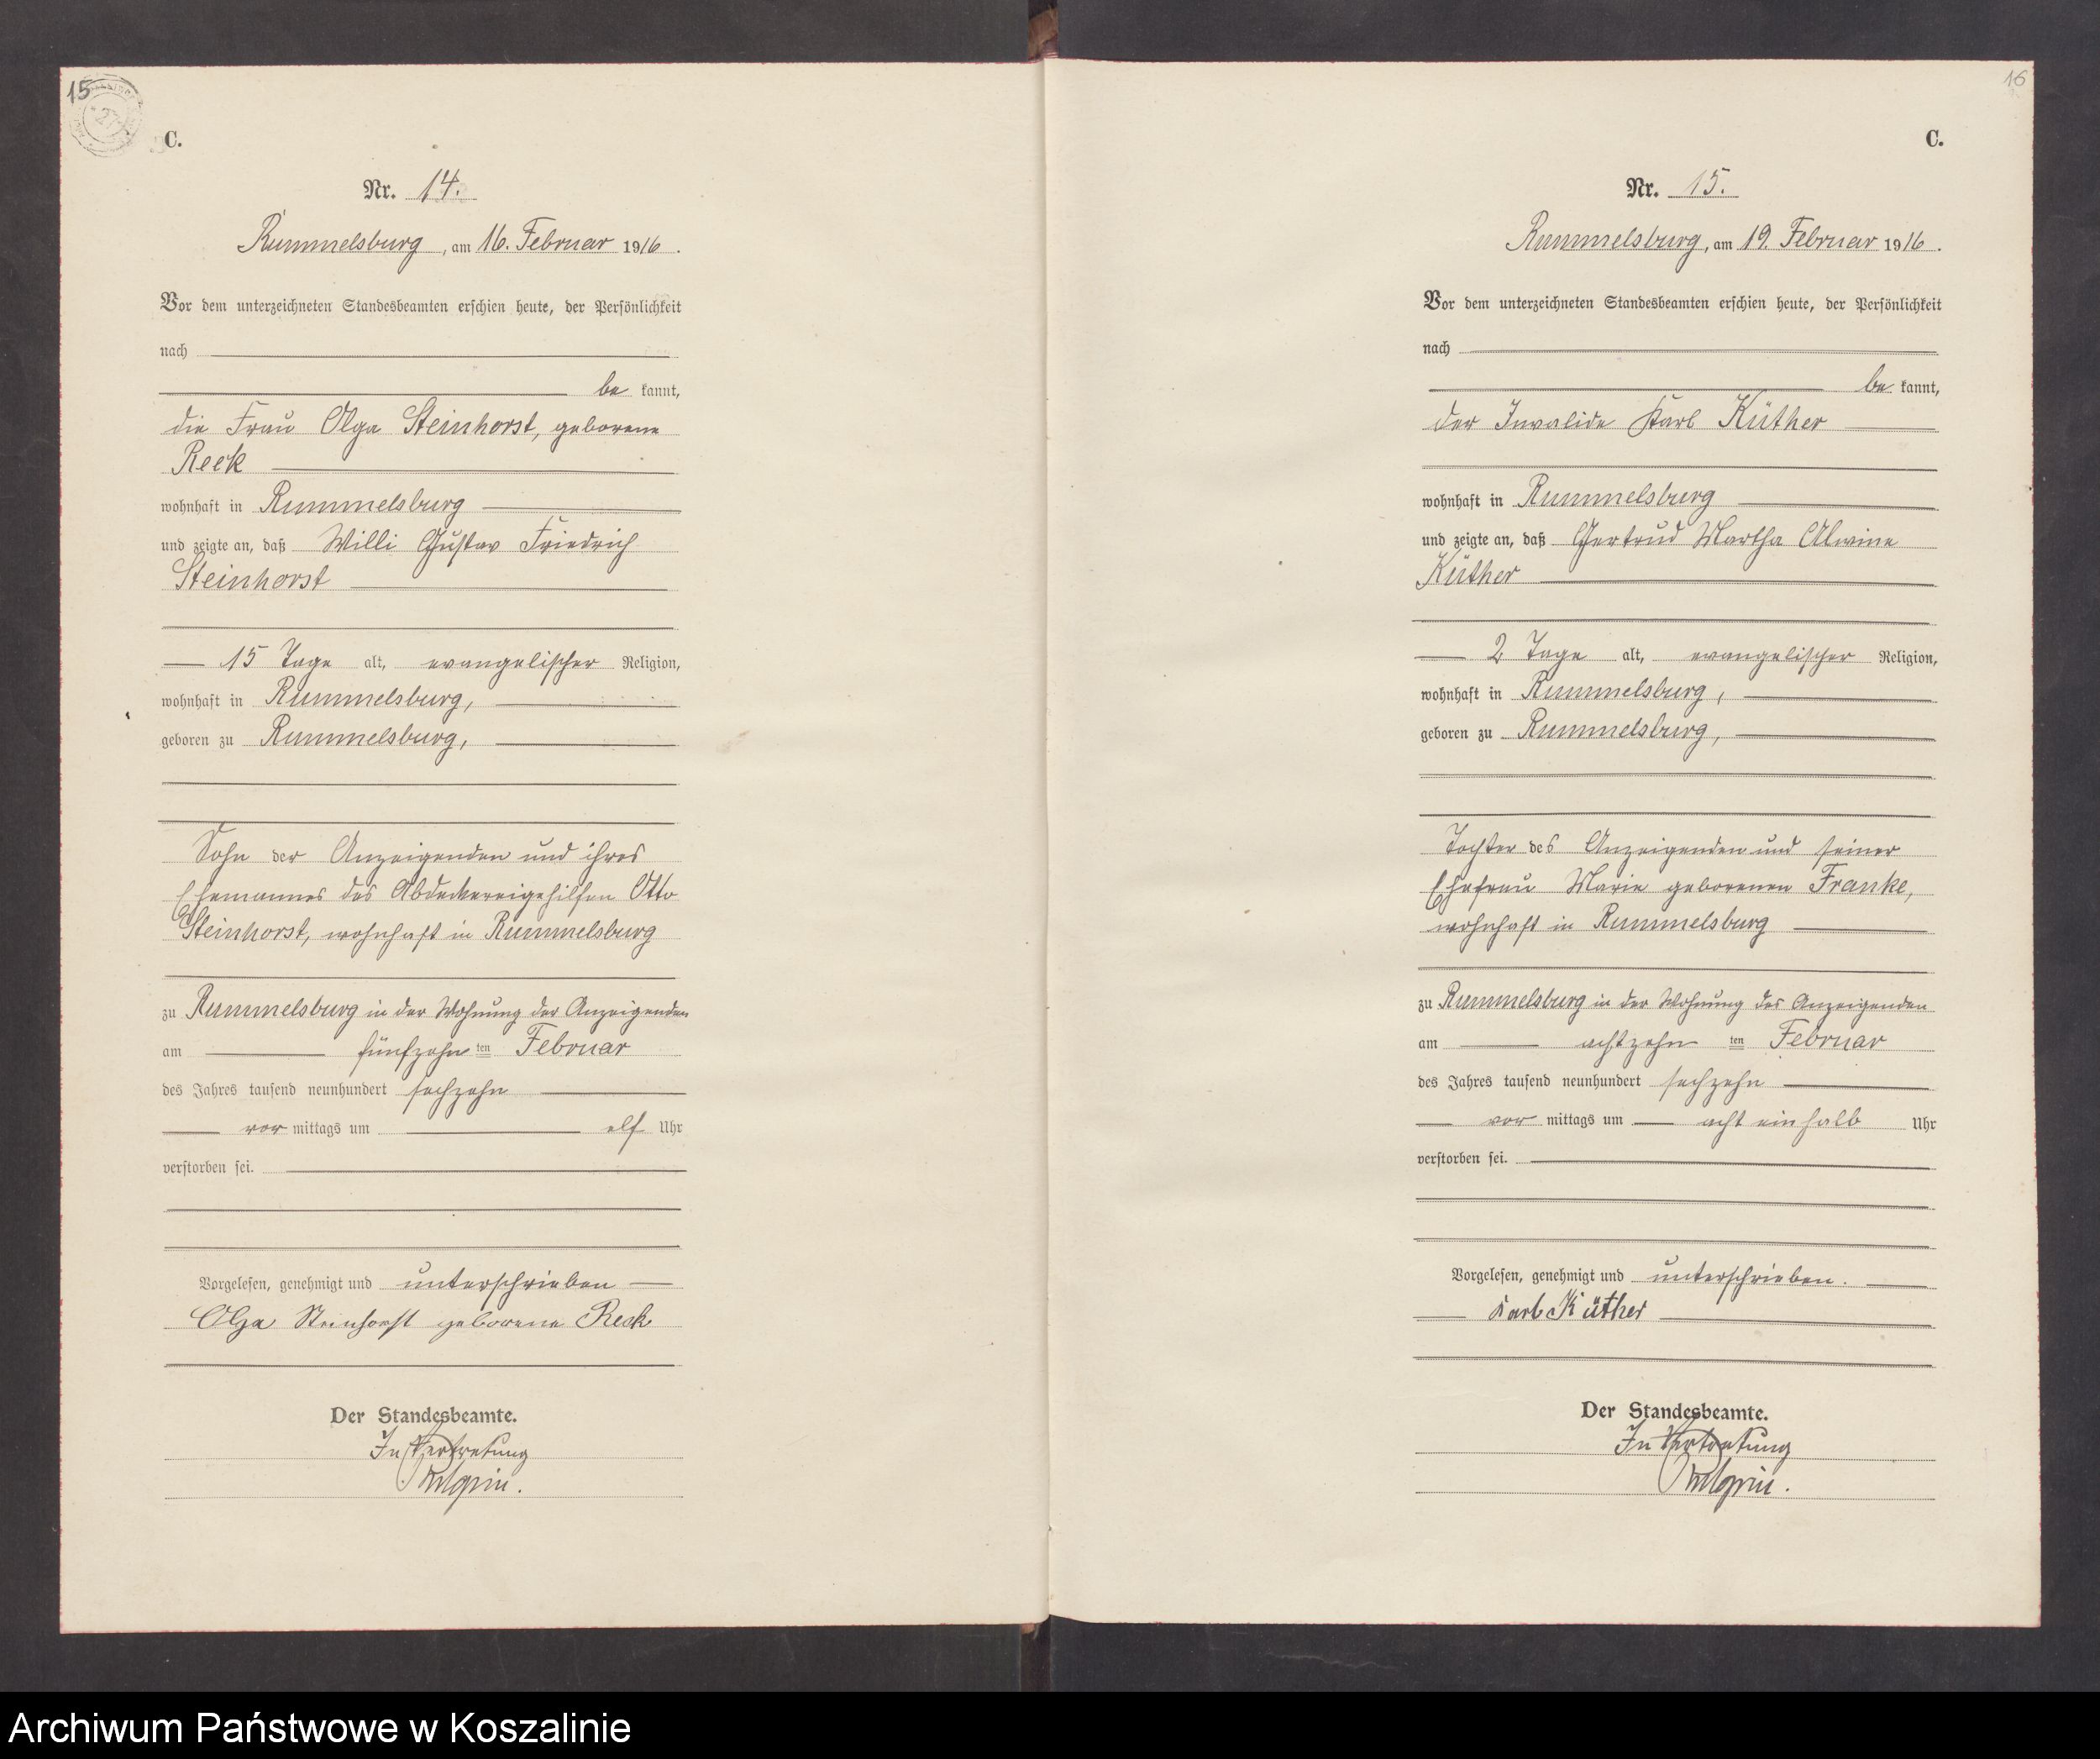 15
27
C.
Nr. 14.
Rummelsburg, am 16. Februar 1916.
Vor dem unterzeichneten Standesbeamten erschien heute, der Persönlichkeit
nach
be kannt,
die Frau Olga Steinhorst, geborene
Reek
wohnhaft in Rummelsburg
und zeigte an, daß Willi Gustav Friedrich
Steinhorst
15 Tage alt, evangelischer Religion,
wohnhaft in Rummelsburg,
geboren zu Rummelsburg,
Sohn der Anzeigenden und ihres
Ehemannes des Abdeckereigehilfen Otto
Steinhorst, wohnhaft in Rummelsburg
zu Rummelsburg in der Wohnung der Anzeigenden
am fünfzehn ten Februar
des Jahres tausend neunhundert sechzehn
vor mittags um elf Uhr
verstorben sei.
Vorgelesen, genehmigt und unterschrieben
Olga Steinhorst geborene Reek
Der Standesbeamte.
In Vertretung
16
C.
Nr. 15.
Rummelsburg, am 19. Februar 1916.
Vor dem unterzeichneten Standesbeamten erschien heute, der Persönlichkeit
nach
be kannt,
der Invalide Karl Küther
wohnhaft in Rummelsburg
und zeigte an, daß Gertrud Martha Alwine
Küther
2 Tage alt, evangelischer Religion,
wohnhaft in Rummelsburg,
geboren zu Rummelsburg,
Tochter des Anzeigenden und seiner
Ehefrau Marie geborenen Franke,
wohnhaft in Rummelsburg
zu Rummelsburg in der Wohnung des Anzeigenden
am achtzehn ten Februar
des Jahres tausend neunhundert sechzehn
vor mittags um acht ein halb Uhr
verstorben sei.
Vorgelesen, genehmigt und unterschrieben.
Karl Küther
Der Standesbeamte.
In Vertretung
Archiwum Państwowe w Koszalinie